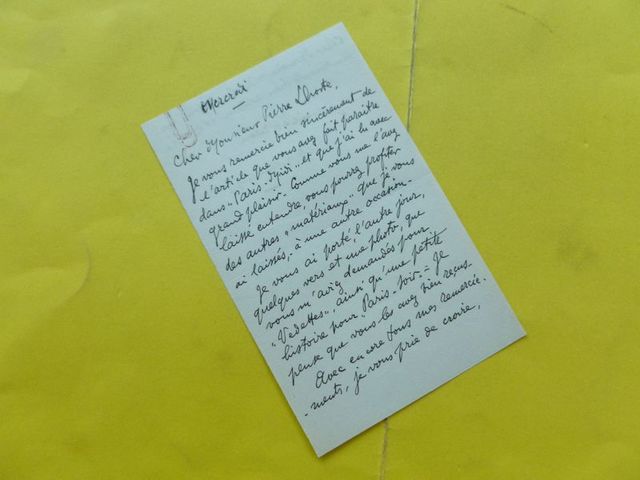 Mercredi
Cher Monsieur Pierre Lhoste,
Je vous remercie bien sincèrement de
l'article que vous avez fait paraître
dans "Paris-Midi" et que j'ai lu avec
grand plaisir. Comme vous me l'avez
laissé entendre, vous pourrez profiter
des autres "matériaux" que je vous
ai laissés, à une autre occasion.
Je vous ai porté, l'autre jour,
quelques vers et une photo, que
vous m'aviez demandés pour
"Vedettes", ainsi qu'une petite
histoire pour "Paris-Soir". Je
pense que vous les avez bien reçus.
Avec encore tous mes remercie-
-ments, je vous prie de croire,